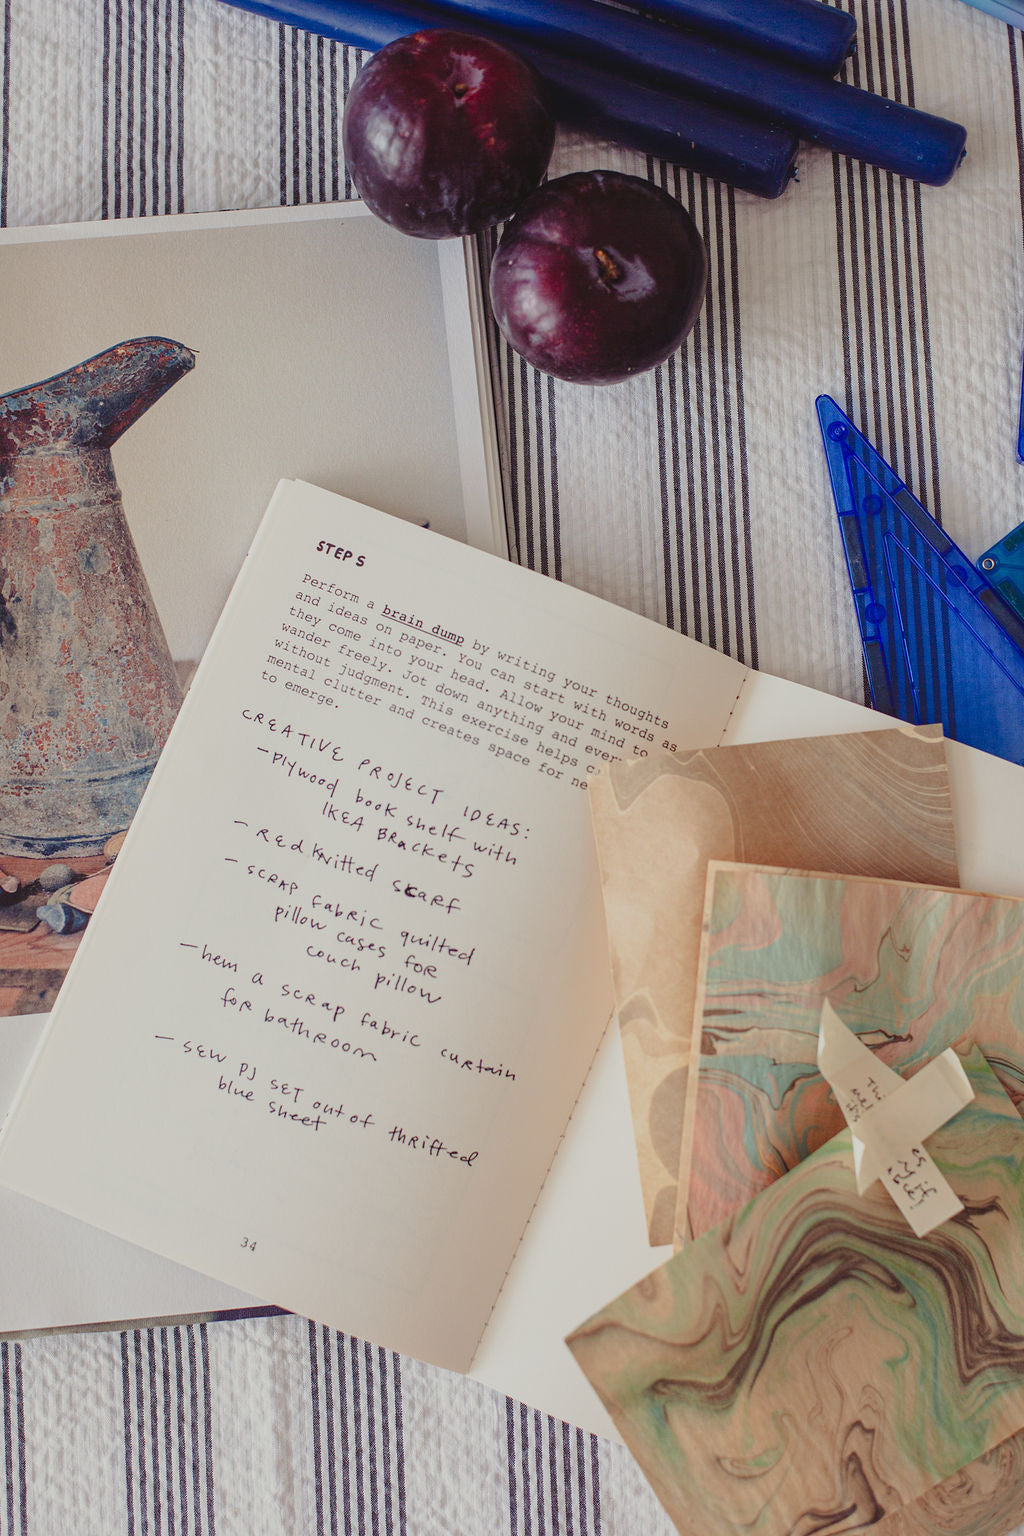 STEP 5
Perform a brain dump by writing your thoughts
and ideas on paper. You can start with words as
they come into your head. Allow your mind to
wander freely. Jot down anything and every
without judgment. This exercise helps c
mental clutter and creates space for ne
to emerge.
CREATIVE PROJECT IDEAS:
- Plywood book shelf with
IKEA BRackets
- Red knitted scarf
- SCRAP fabric quilted
pillow cases for
couch pillow
- hem a scrap fabric curtain
for bathroom
- SEW PJ SET out of thrifted
blue sheet
34